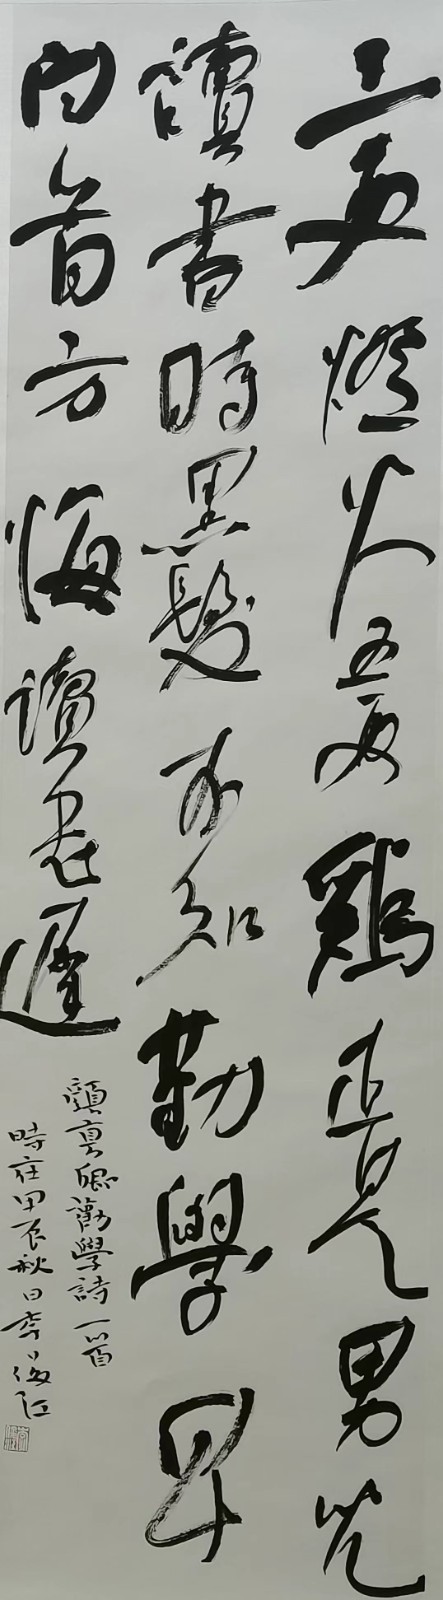 三更燈火五更鷄正是男兒
讀書時黑髮不知勤學早
白首方悔讀書遲
顏真卿勸學詩一首
時在甲辰秋日李